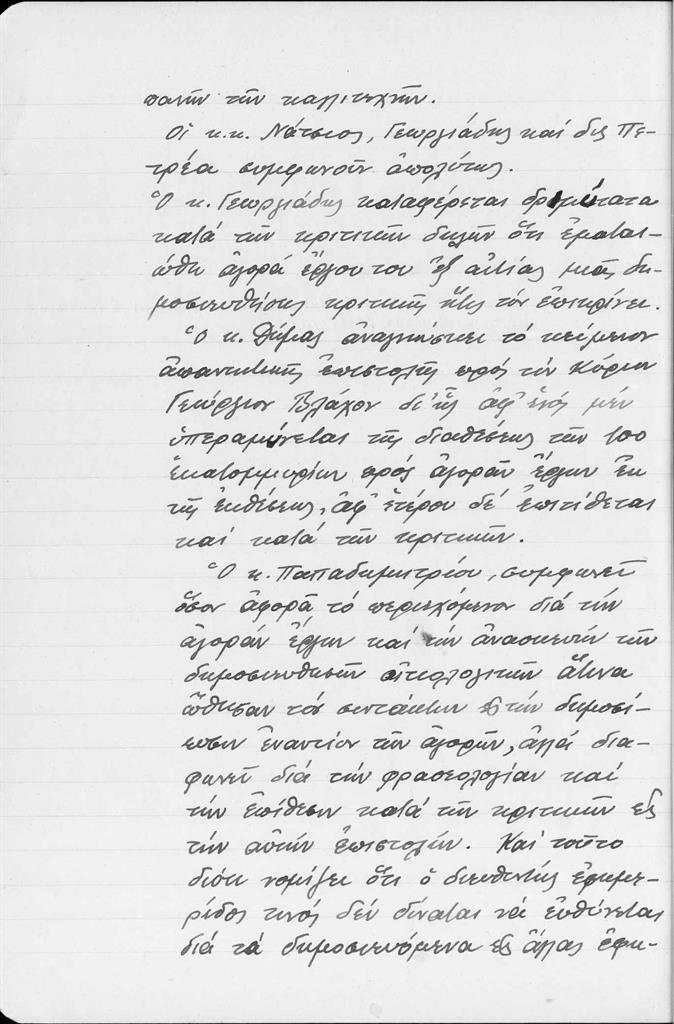 πανῆν τῶν καλλιτεχνῶν.
Οἱ κ.κ. Νάτσιος, Γεωργιάδης καί δὶς Πε-
τρέα συμφωνοῦν ἀπολύτως.
Ὁ κ. Γεωργιάδης καταφέρεται δριμύτατα
κατά τῶν κριτικῶν δηλῶν ὅτι ἐμαται-
ώθη ἀγορά ἔργου του ἐξ αἰτίας μιᾶς δη-
μοσιευθείσης κριτικῆς ἥτις τόν ἐπικρίνει.
Ὁ κ. Δήμας ἀναγινώσκει τό κείμενον
ἀπαντητικῆς ἐπιστολῆς πρός τόν Κύριον
Γεώργιον Βλάχον δι' ἧς ἀφ' ἑνός μέν
ὑπεραμύνεται τῆς διαθέσεως τῶν 100
ἑκατομμυρίων πρός ἀγοράν ἔργων ἐκ
τῆς ἐκθέσεως, ἀφ' ἑτέρου δέ ἐπιτίθεται
καί κατά τῶν κριτικῶν.
Ὁ κ. Παπαδημητρίου, συμφωνεῖ
ὅσον ἀφορᾶ τό περιεχόμενον διά τήν
ἀγοράν ἔργων καί τήν ἀνασκευήν τῶν
δημοσιευθεισῶν αἰτιολογιῶν ἅτινα
ὤθησαν τόν συντάκτην εἰς τήν δημοσί-
ευσιν ἐναντίον τῶν ἀγορῶν, ἀλλά δια-
φωνεῖ διά τήν φρασεολογίαν καί
τήν ἐπίθεσιν κατά τῶν κριτικῶν εἰς
τήν αὐτήν ἐπιστολήν. Καί τοῦτο
διότι νομίζει ὅτι ὁ διευθυντής ἐφημε-
ρίδος τινός δέν δύναται νά εὐθύνεται
διά τά δημοσιευόμενα εἰς ἄλλας ἐφη-